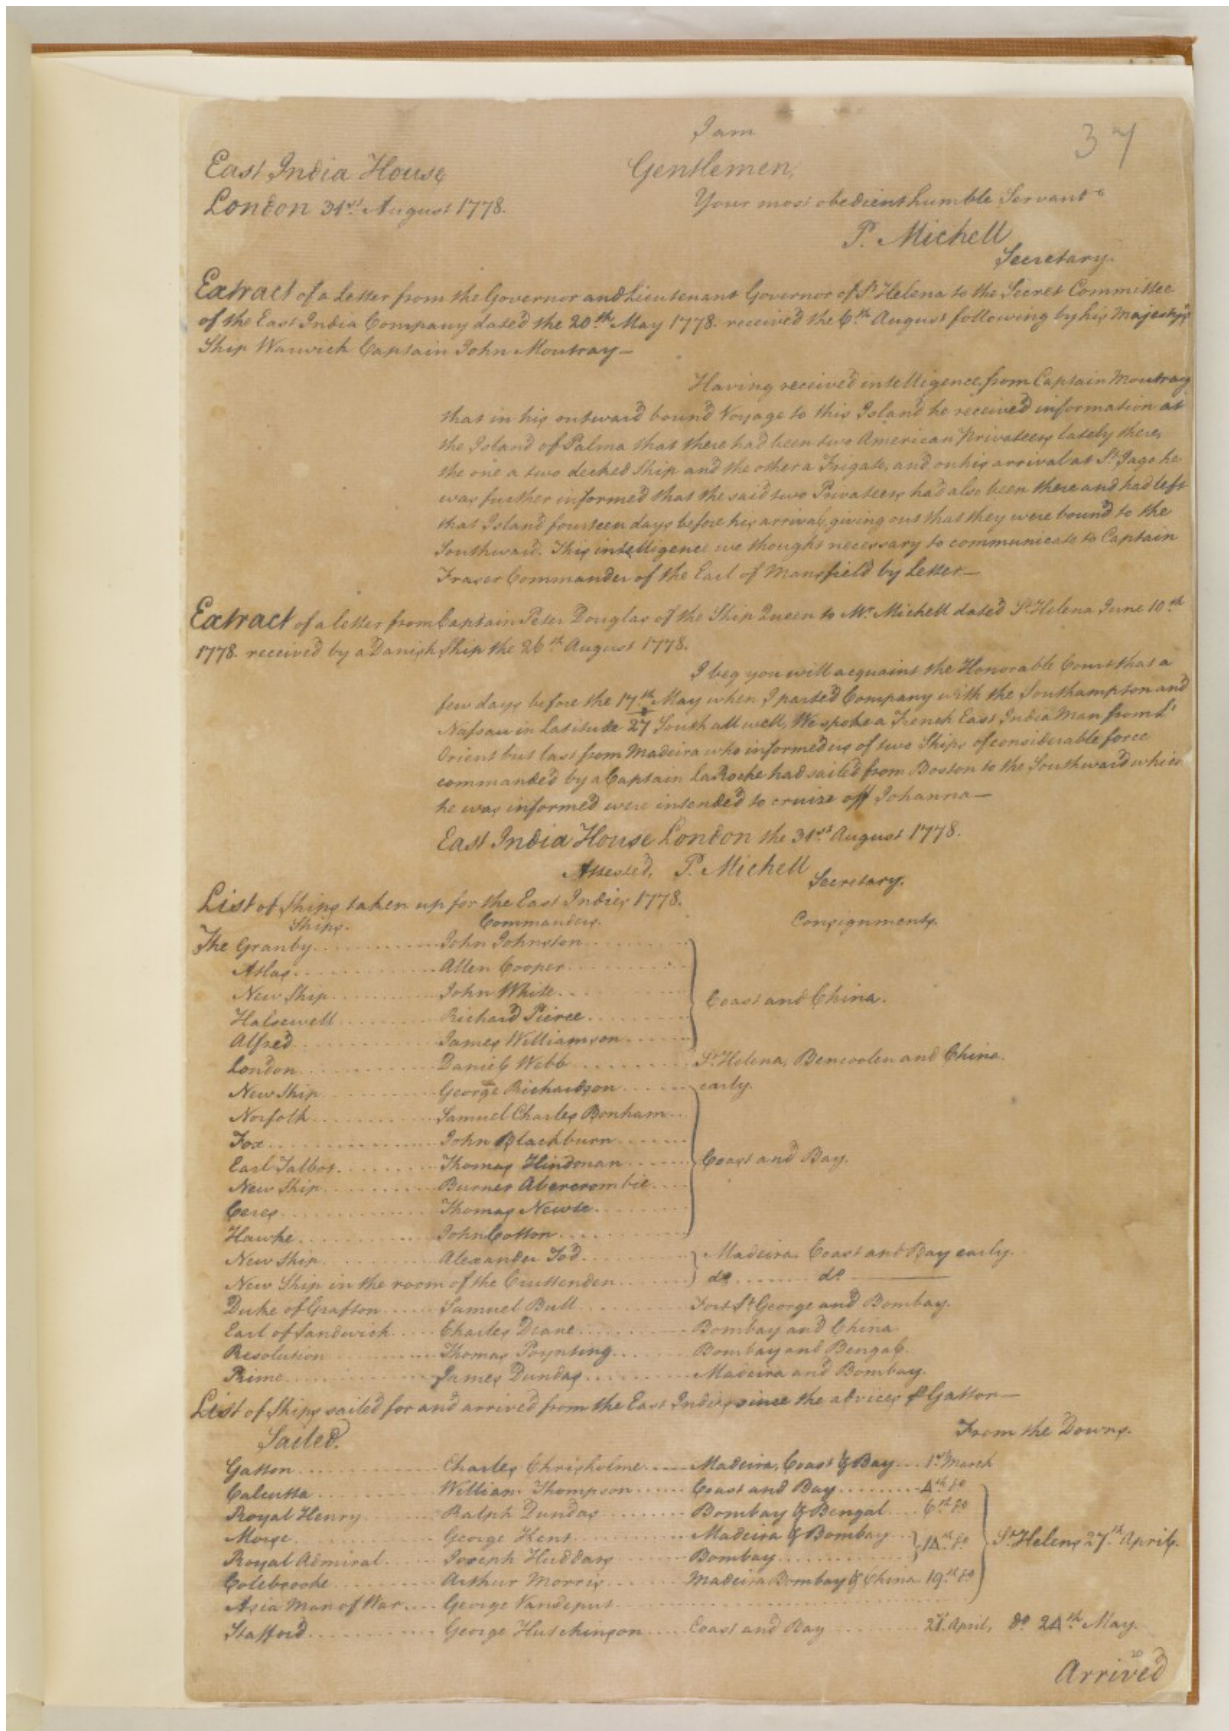 I am
37
East India House Gentlemen,
London 31st. August 1778. Your most obedient humble Servant
P. Michell
Secretary.
Extract of a Letter from the Governor and Lieutenant Governor of St. Helena to the Secret Committee
of the East India Company dated the 20th. May 1778. received the 6th. August following by his Majesty's
Ship Warwick Captain John Moutray—
Having received intelligence from Captain Moutray
that in his outward bound Voyage to this Island he received information at
the Island of Palma that there had been two American Privateers lately there,
the one a two decked Ship and the other a Frigate, and on his arrival at St. Jago he
was further informed that the said two Privateers had also been there and had left
that Island fourteen days before his arrival, giving out that they were bound to the
Southward. This intelligence we thought necessary to communicate to Captain
Fraser Commander of the Earl of Mansfield by Letter—
Extract of a letter from Captain Peter Douglas of the Ship Queen to Mr. Michell dated St. Helena June 10th.
1778. received by a Danish Ship the 26th. August 1778.
I beg you will acquaint the Honorable Court that a
few days before the 17th. May when I parted Company with the Southampton and
Nassau in Latitude 27 South all well, We spoke a French East India Man from L'
Orient but last from Madeira who informed us of two Ships of considerable force
commanded by a Captain LaRoche had sailed from Boston to the Southward which
he was informed were intended to cruize off Johanna—
East India House London the 31st. August 1778.
Attested, P. Michell
Secretary.
List of Ships taken up for the East Indies 1778.
Ships. Commanders. Consignments.
The Granby John Johnston
Atlas Allen Cooper
New Ship John White
Halsewell Richard Pierce Coast and China.
Alfred James Williamson
London Daniel Webb St. Helena, Bencoolen and China
New Ship George Richardson early.
Norfolk Samuel Charles Bonham
Fox John Blackburn
Earl Talbot Thomas Hindman Coast and Bay.
New Ship Burnet Abercrombie
Ceres Thomas Newte
Hawke John Cotton
New Ship Alexander Tod Madeira, Coast and Bay early.
New Ship in the room of the Cruttenden do. do.
Duke of Grafton Samuel Bull Fort St. George and Bombay.
Earl of Sandwich Charles Deane Bombay and China
Resolution Thomas Poynting Bombay and Bengal.
Prime James Dundas Madeira and Bombay.
List of Ships sailed for and arrived from the East Indies since the advices Gatton—
Sailed. From the Downs.
Gatton Charles Chrisholme Madeira, Coast & Bay 1st. March
Calcutta William Thompson Coast and Bay 4th. do
Royal Henry Ralph Dundas Bombay & Bengal 6th. do
Morse George Kent Madeira & Bombay 14th. do St. Helens 27th. April.
Royal Admiral Joseph Huddart Bombay
Colebrooke Arthur Morris Madeira Bombay & China 19th. do
Asia Man of War George Vandeput
Stafford George Hutchinson Coast and Bay April, do 24th. May.
Arrived